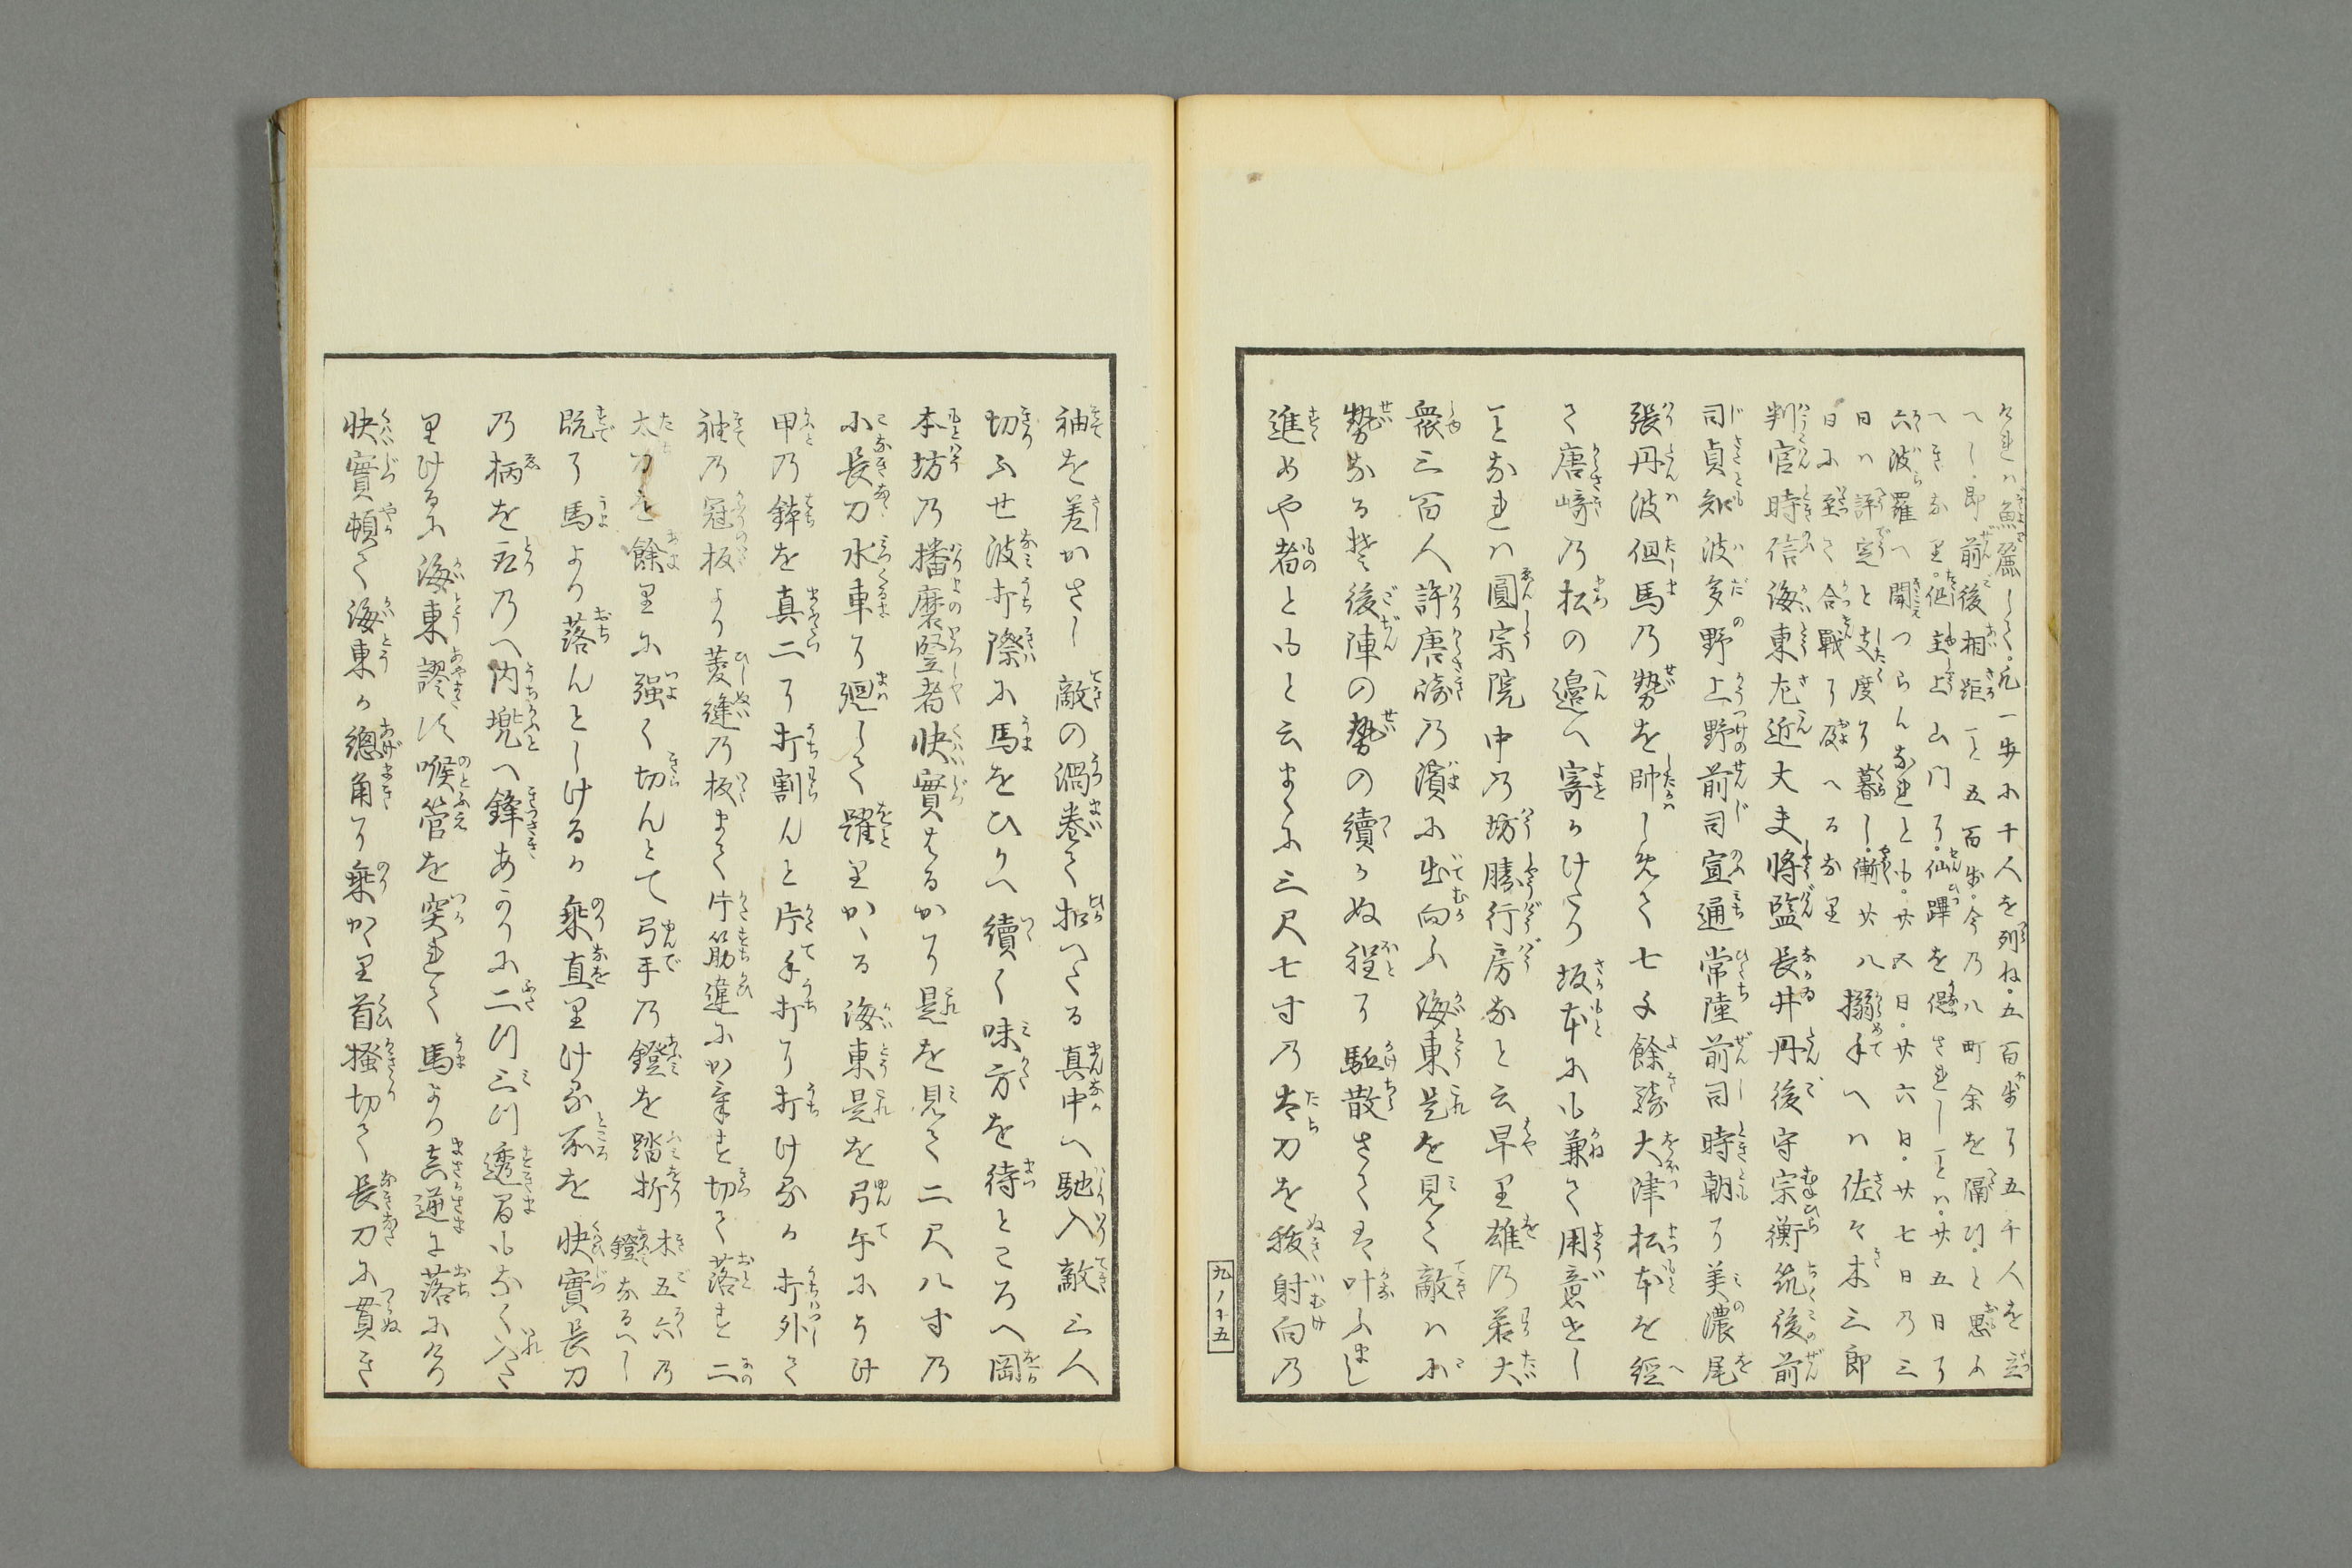 へし。即前後相距こと五百歩。今乃八町余を隔つ。と思ふ
六波羅へ聞えつらんなれとも。廿五日。廿六日。廿七日乃三
日ハ評定と支度に暮し。漸廿八搦手へハ佐々木三郎
日に至て合戦に及へるなり
判官時信海東左近大夫将監長井丹後守宗衡筑後前
司貞知波多野上野前司宣通常陸前司時朝に美濃尾
張丹波但馬乃勢を帥しめて七千餘騎大津松本を經
て唐﨑乃松の邊へ寄かけたり坂本にも兼て用意せし
ことなれハ圓宗院中乃坊勝行房なと云早り雄乃若大
衆三百人許唐﨑乃濱に出向ふ海東是を見て敵ハ小
勢なるそ後陣の勢の續かぬ程に駈散さてハ叶ふまし
進めや者ともと云まゝに三尺七寸乃太刀を抜射向乃
袖を差かさし敵の渦巻て扣へたる真中へ馳入敵三人
切ふせ波打際に馬をひかへ續く味方を待ところへ岡
本坊乃播磨竪者快實はるかに是を見て二尺八寸乃
小長刀水車に廻して躍りかゝる海東是を弓手にうけ
甲乃鉢を真二に打割んと片手打に打けるか打外して
袖乃冠板より菱縫乃板まて片筋違にかけす切て落す二
太刀を餘りに強く切んとて弓手乃鐙を踏折 木五六乃
鐙なるへし
既に馬より落んとしけるか乗直りける所を快實長刀
乃柄を取のへ内兜へ鋒あかりに二つ三つ透間もなく入た
りけるに海東謬す喉管を突れて馬より真逆に落にけり
快實頓て海東か總角に乗かゝり首掻切て長刀に貫き
九ノ十五